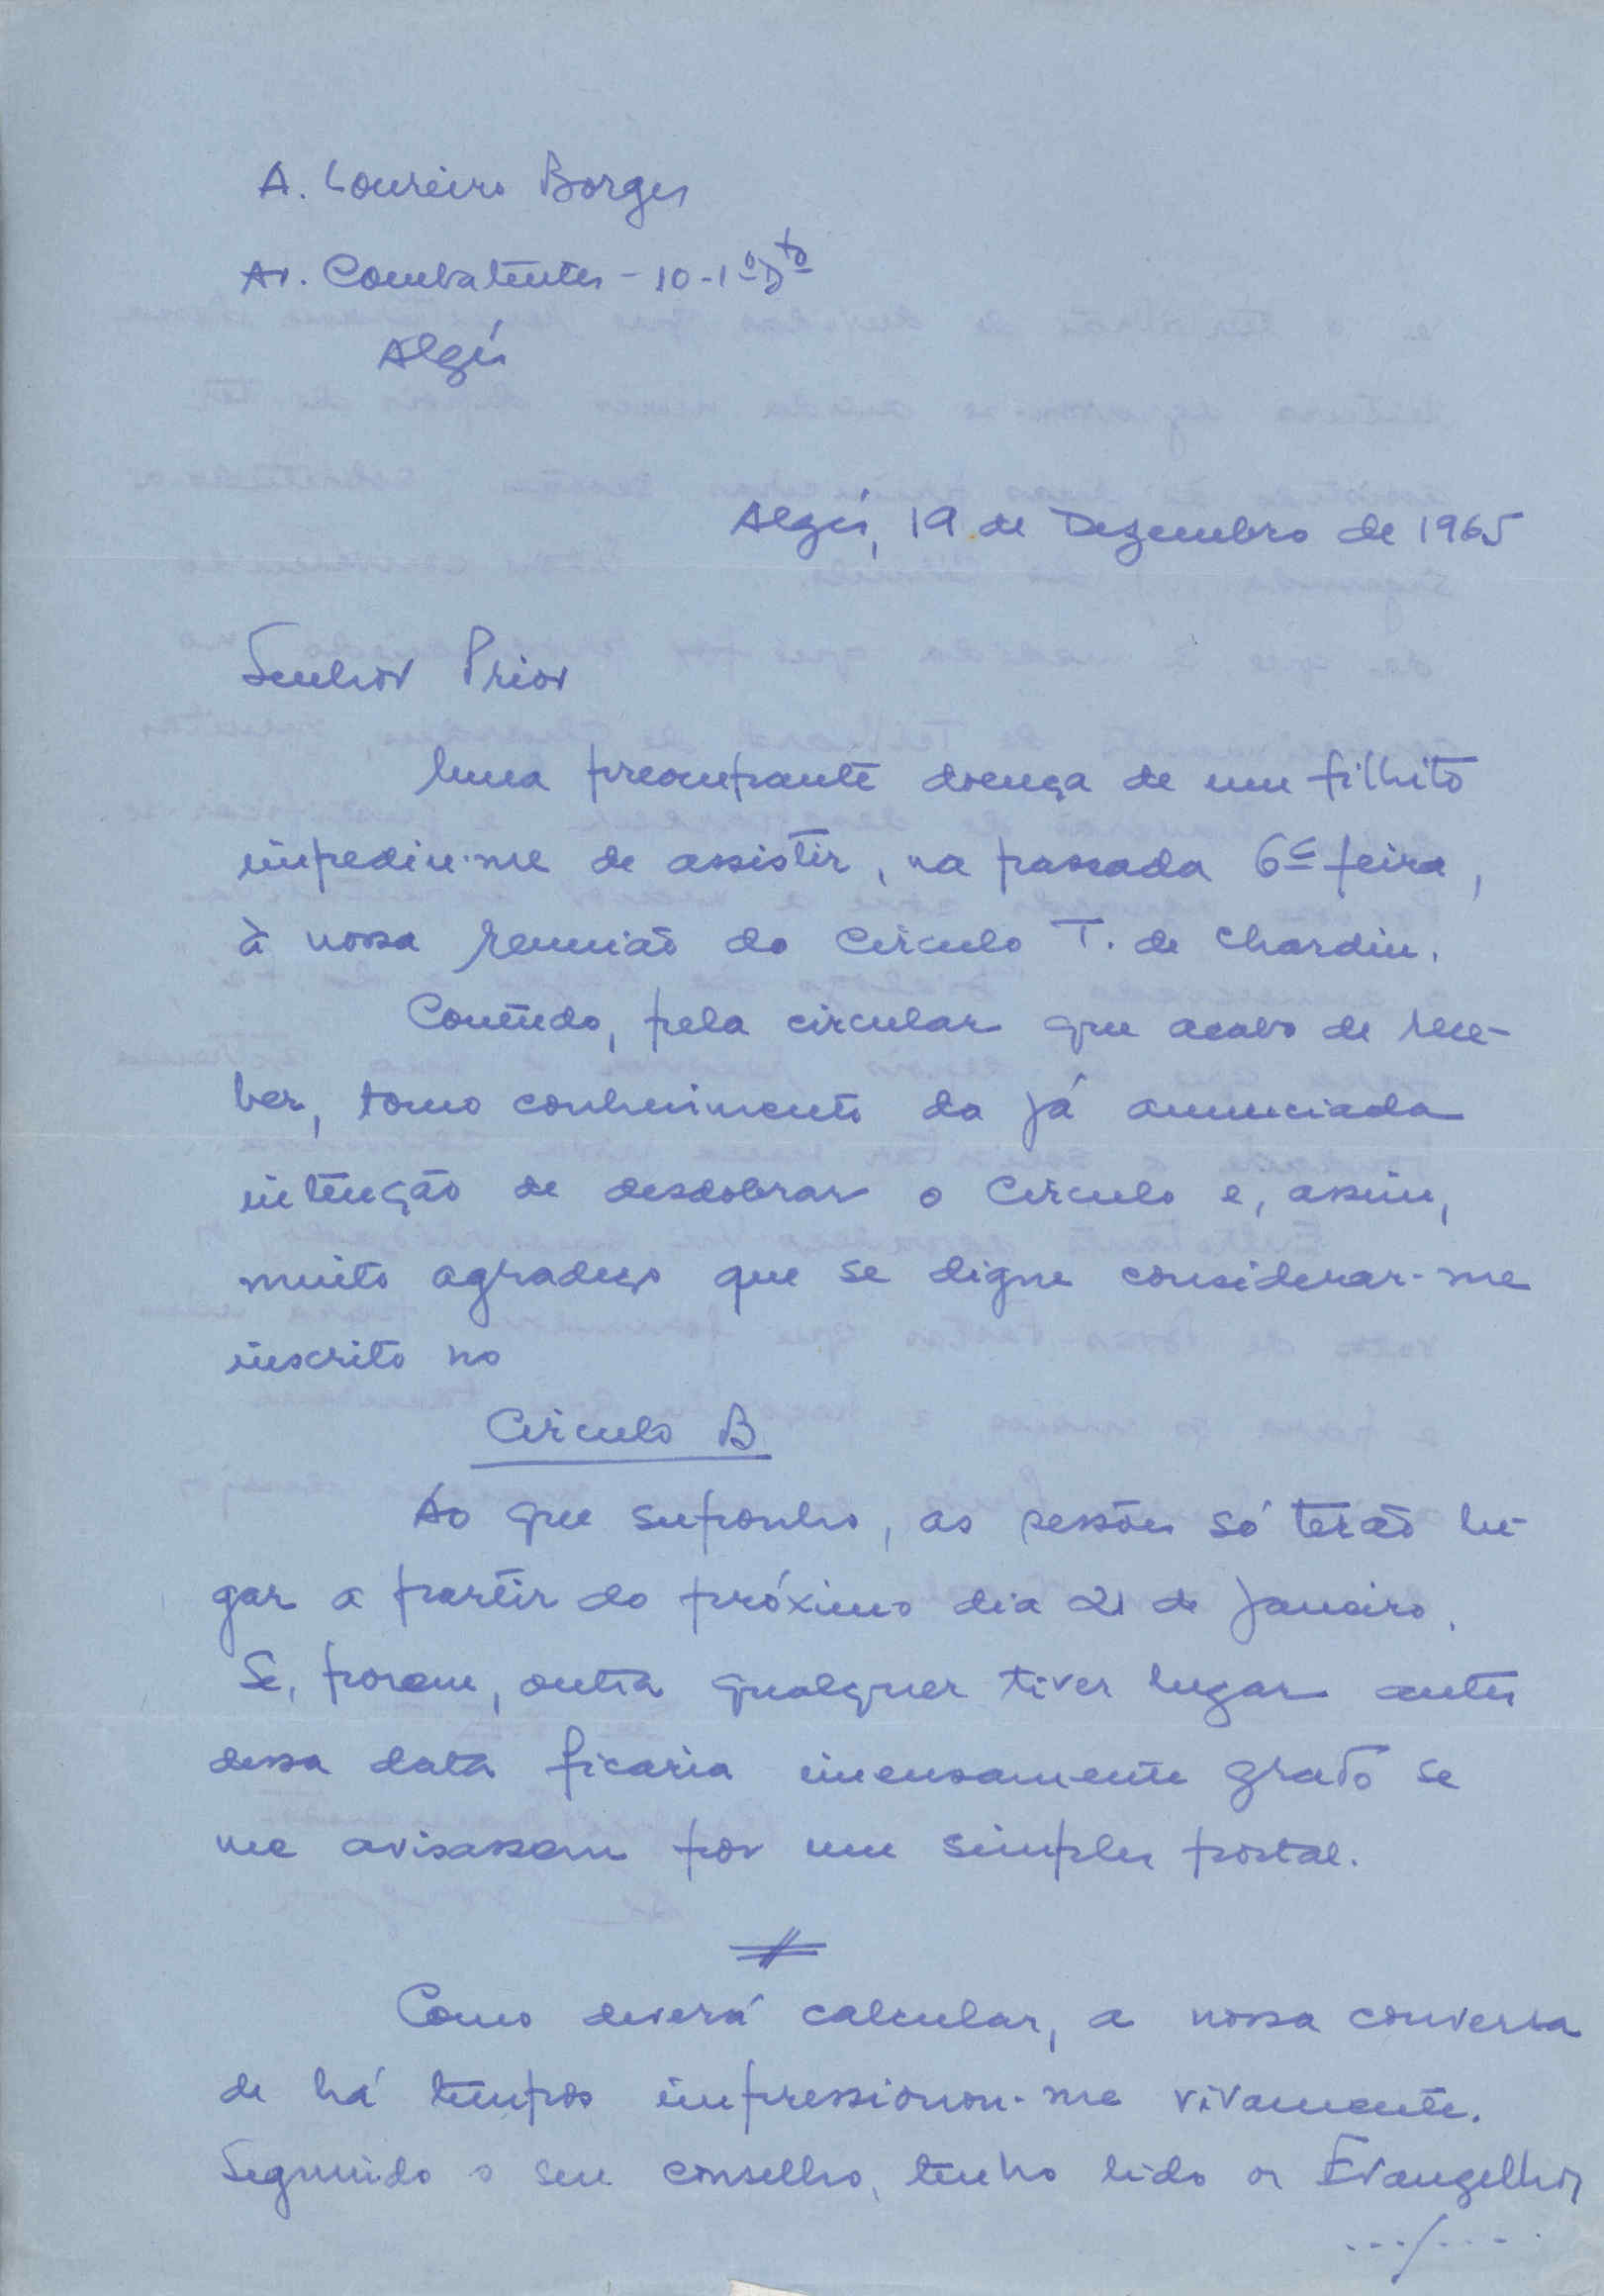 A. Loureiro Borges
Av. Combatentes - 10-1º Dto
Algés
Algés, 19 de Dezembro de 1965
Senhor Prior
Uma preocupante doença de um filhito
impediu-me de assistir, na passada 6ª feira,
à nossa reunião do Circulo T. de Chardin.
Contudo, pela circular que acabo de rece-
ber, tomo conhecimento da já anunciada
intenção de desdobrar o Circulo e, assim,
muito agradeço que se digne considerar-me
inscrito no
Circulo B
Ao que suponho, as sessões só terão lu-
gar a partir do próximo dia 21 de Janeiro.
Se, porem, outra qualquer tiver lugar antes
dessa data ficaria imensamente grato se
me avisassem por um simples postal.
Como deverá calcular, a nossa conversa
de há tempos impressionou-me vivamente.
Seguindo o seu conselho, tenho lido os Evangelhos
.../...